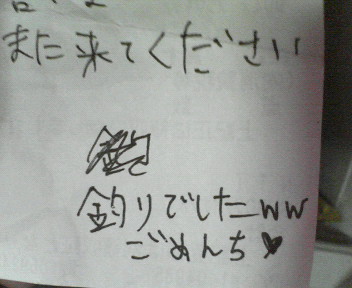 また来てください
釣りでしたww
ごめんち♥